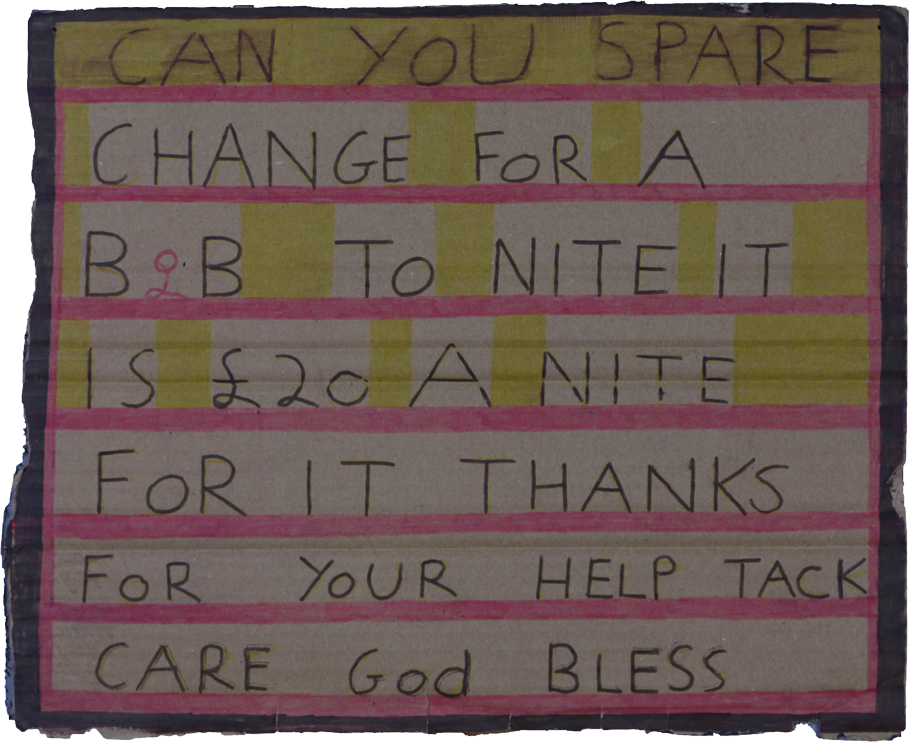 CAN YOU SPARE
CHANGE FOR A
B & B TO NITE IT
IS £20 A NITE
FOR IT THANKS
FOR YOUR HELP TACK
CARE God BLESS